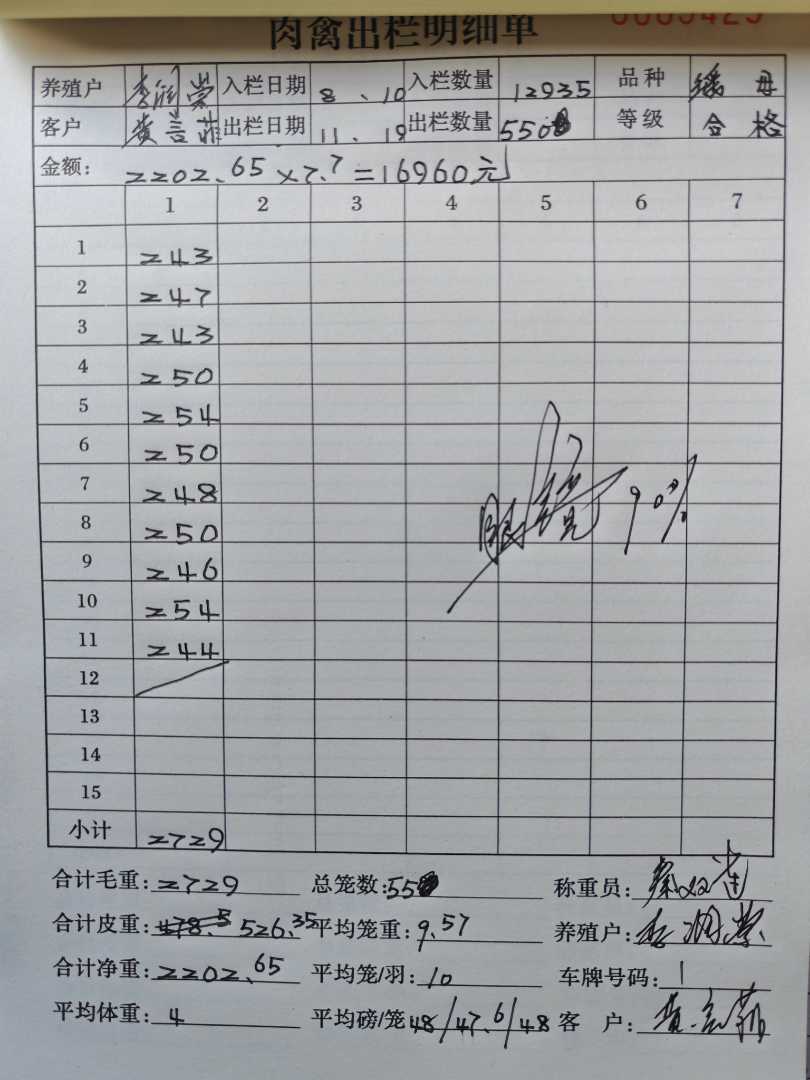 肉禽出栏明细单
养殖户 李润荣 入栏日期 8、10 入栏数量 12935 品种
客户 黄言菲 出栏日期 11.19 出栏数量 550 等级 合格
金额: 2202.65×7.7=16960元
1 2 3 4 5 6 7
1 243
2 247
3 243
4 250
5 254
6 250
7 248
8 250
9 246
10 254
11 244
12
13
14
15
小计 2729
90%
合计毛重: 2729 总笼数: 55 称重员:
合计皮重: 478.5 526.35 平均笼重: 9.57 养殖户: 李润荣
合计净重: 2202.65 平均笼/羽: 10 车牌号码: 1
平均体重: 4 平均磅/笼: 48/47.6/48 客户: 黄言菲